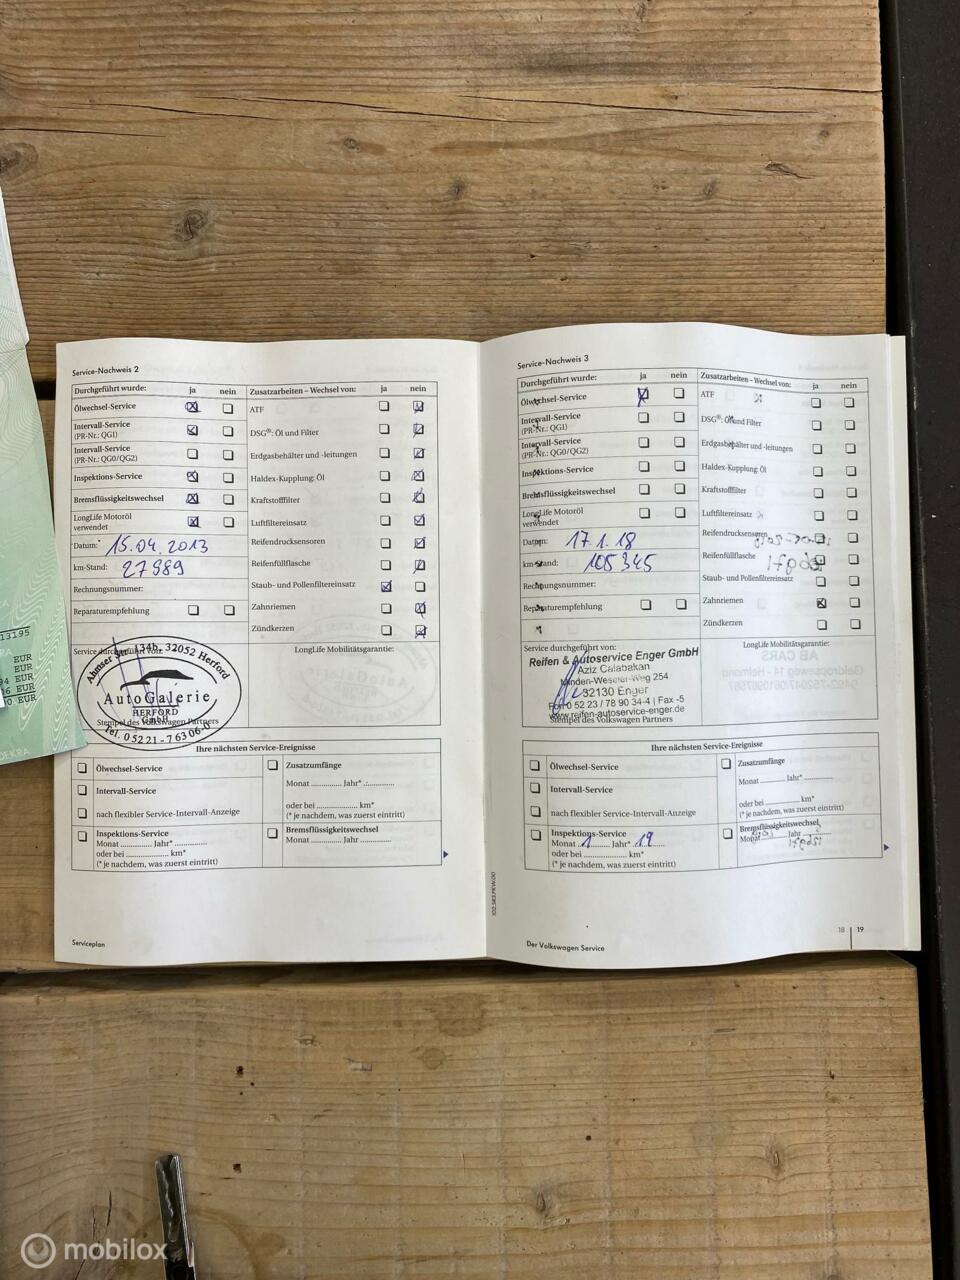 13195
EUR
EUR
94 EUR
06 EUR
0 EUR
DEKRA
Service-Nachweis 2
Durchgeführt wurde: ja nein
Ölwechsel-Service
Intervall-Service
(PR-Nr.: QG1)
Intervall-Service
(PR-Nr.: QG0/QG2)
Inspektions-Service
Bremsflüssigkeitswechsel
LongLife Motoröl
verwendet
Datum: 15.04.2013
km-Stand: 27989
Rechnungsnummer:
Reparaturempfehlung
Zusatzarbeiten – Wechsel von: ja nein
ATF
DSG®: Öl und Filter
Erdgasbehälter und -leitungen
Haldex-Kupplung: Öl
Kraftstofffilter
Luftfiltereinsatz
Reifendrucksensoren
Reifenfüllflasche
Staub- und Pollenfiltereinsatz
Zahnriemen
Zündkerzen
Service durchgeführt von:
34b, 32052 Herford
AutoGalerie
HERFORD
GmbH
Tel. 05221-76306-0
Stempel des Volkswagen Partners
LongLife Mobilitätsgarantie:
Ihre nächsten Service-Ereignisse
Ölwechsel-Service
Intervall-Service
nach flexibler Service-Intervall-Anzeige
Inspektions-Service
Monat .............. Jahr* ..............
oder bei ................... km*
(* je nachdem, was zuerst eintritt)
Zusatzumfänge
Monat .............. Jahr* ..............
oder bei ................... km*
(* je nachdem, was zuerst eintritt)
Bremsflüssigkeitswechsel
Monat .............. Jahr ..............
Serviceplan
Service-Nachweis 3
Durchgeführt wurde: ja nein
Ölwechsel-Service
Intervall-Service
(PR-Nr.: QG1)
Intervall-Service
(PR-Nr.: QG0/QG2)
Inspektions-Service
Bremsflüssigkeitswechsel
LongLife Motoröl
verwendet
Datum: 17.1.18
km-Stand: 105345
Rechnungsnummer:
Reparaturempfehlung
Zusatzarbeiten – Wechsel von: ja nein
ATF
DSG®: Öl und Filter
Erdgasbehälter und -leitungen
Haldex-Kupplung: Öl
Kraftstofffilter
Luftfiltereinsatz
Reifendrucksensoren
Reifenfüllflasche
Staub- und Pollenfiltereinsatz
Zahnriemen
Zündkerzen
Service durchgeführt von:
Reifen & Autoservice Enger GmbH
Aziz Calabakan
Minden-Weseler-Weg 254
32130 Enger
Fon 0 52 23 / 78 90 34-4 | Fax -5
www.reifen-autoservice-enger.de
Stempel des Volkswagen Partners
LongLife Mobilitätsgarantie:
Ihre nächsten Service-Ereignisse
Ölwechsel-Service
Intervall-Service
nach flexibler Service-Intervall-Anzeige
Inspektions-Service
Monat 1 Jahr* 19
oder bei ................... km*
(* je nachdem, was zuerst eintritt)
Zusatzumfänge
Monat .............. Jahr* ..............
oder bei ................... km*
(* je nachdem, was zuerst eintritt)
Bremsflüssigkeitswechsel
Monat .............. Jahr ..............
Der Volkswagen Service
18 | 19
mobilox